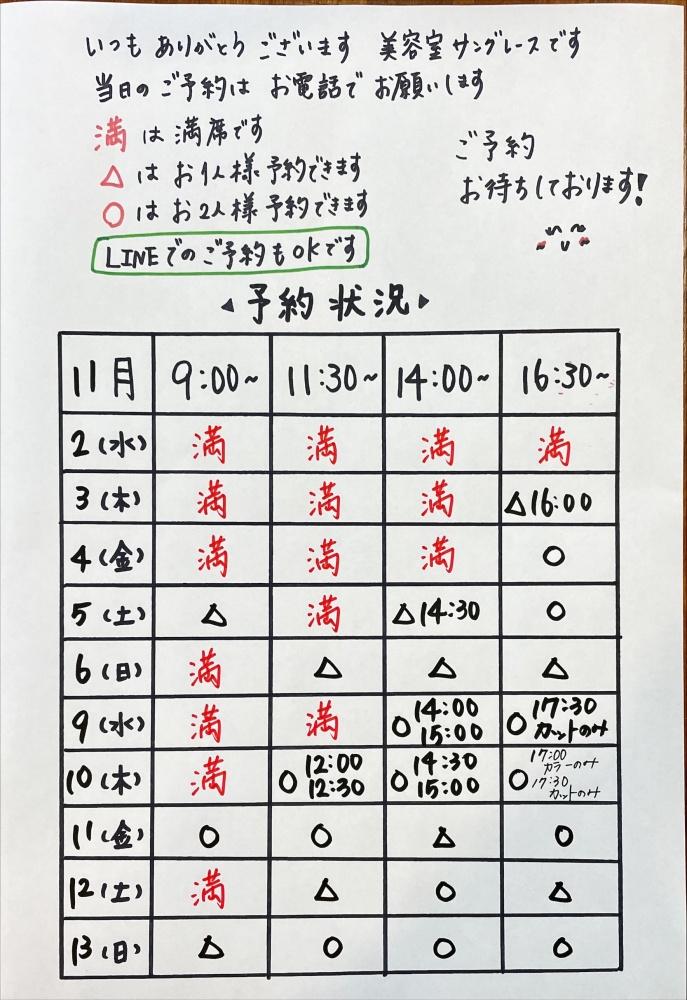 いつも ありがとう ございます 美容室 サングレースです
当日の ご予約は お電話で お願いします
満 は 満席です
△ は お1人様 予約できます
○ は お2人様 予約できます
LINEでの ご予約も OKです
ご予約
お待ちしております!
予約 状況
11月 9:00~ 11:30~ 14:00~ 16:30~
2(水) 満 満 満 満
3(木) 満 満 満 △16:00
4(金) 満 満 満 ○
5(土) △ 満 △14:30 ○
6(日) 満 △ △ △
9(水) 満 満 ○14:00 15:00 ○17:30 カットのみ
10(木) 満 ○12:00 12:30 ○14:30 15:00 ○17:00 カラーのみ 17:30 カットのみ
11(金) ○ ○ △ ○
12(土) 満 △ ○ △
13(日) △ ○ ○ ○